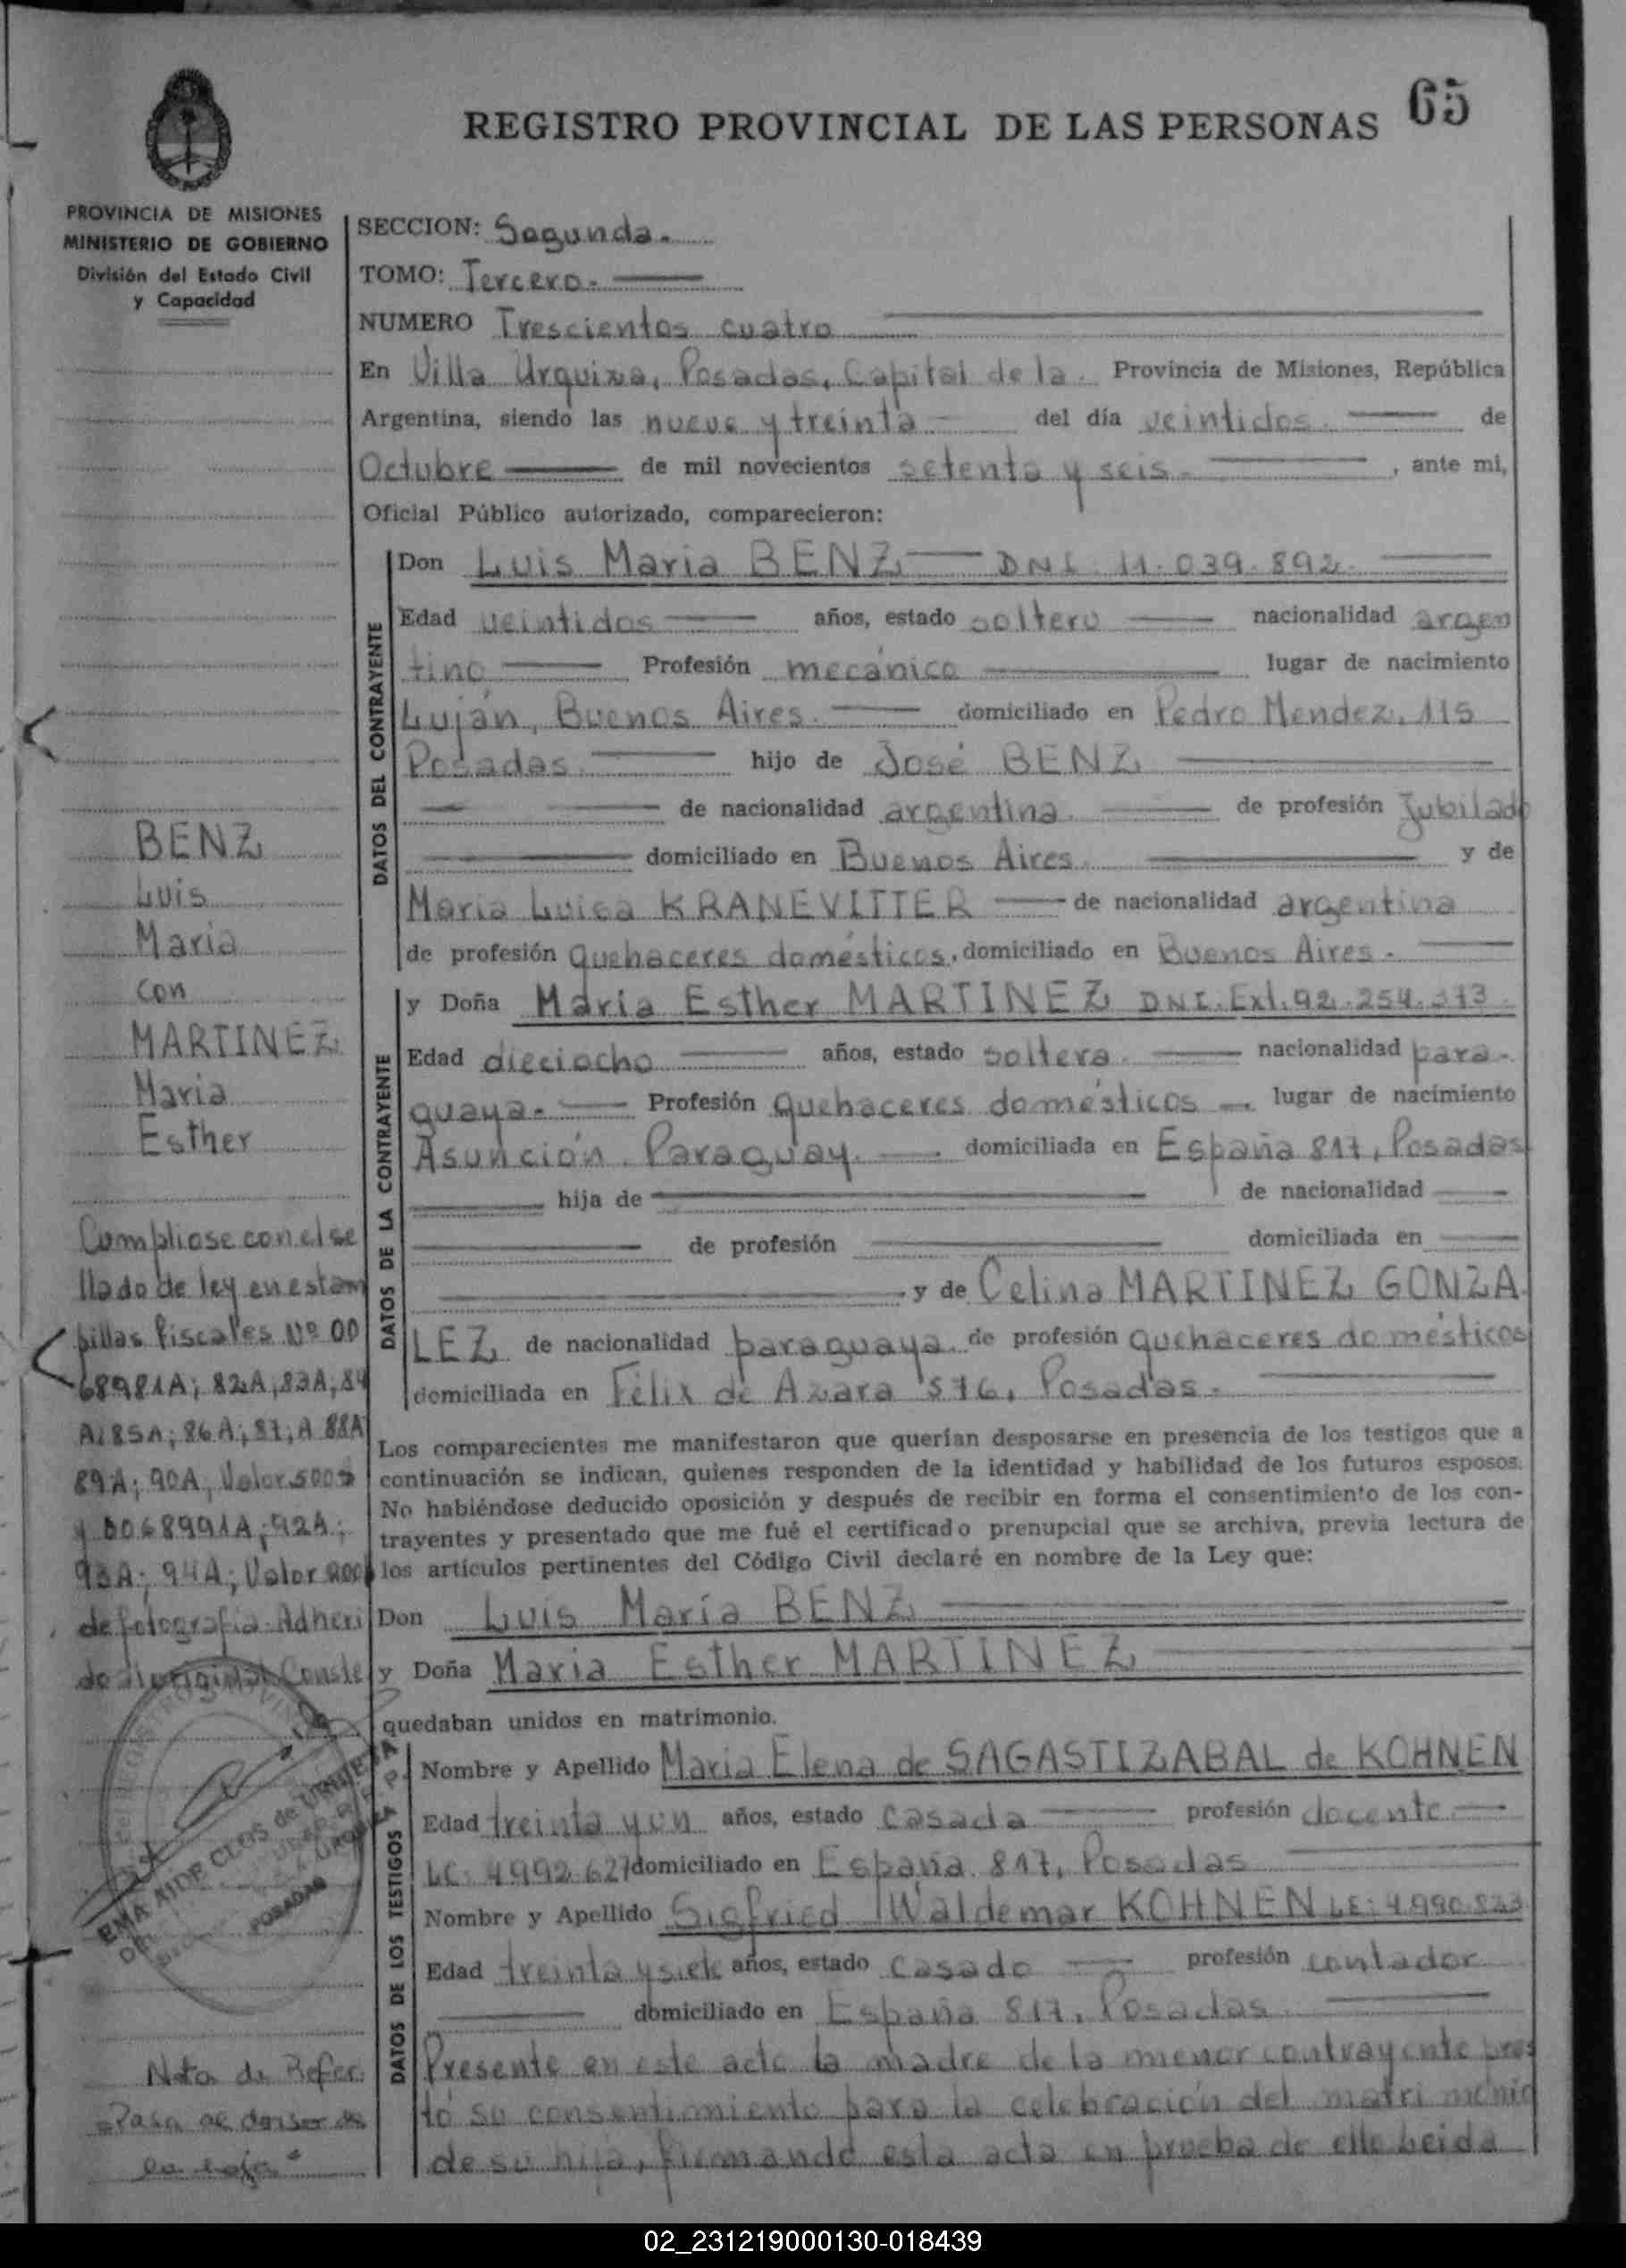 65
REGISTRO PROVINCIAL DE LAS PERSONAS
PROVINCIA DE MISIONES
MINISTERIO DE GOBIERNO
División del Estado Civil
y Capacidad
SECCION: Segunda.
TOMO: Tercero.
NUMERO Trescientos cuatro
En Villa Urquiza, Posadas, Capital de la Provincia de Misiones, República
Argentina, siendo las nueve y treinta del día veintidos de
Octubre de mil novecientos setenta y seis. , ante mi,
Oficial Público autorizado, comparecieron:
DATOS DEL CONTRAYENTE
Don Luis Maria BENZ DNI 11.039.892
Edad veintidos años, estado soltero nacionalidad argen
tino Profesión mecánico lugar de nacimiento
Luján, Buenos Aires. domiciliado en Pedro Mendez, 115
Posadas. hijo de José BENZ
de nacionalidad argentina. de profesión Jubilado
domiciliado en Buenos Aires. y de
Maria Luisa KRANEVITTER de nacionalidad argentina
de profesión Quehaceres domésticos, domiciliado en Buenos Aires.
DATOS DE LA CONTRAYENTE
y Doña Maria Esther MARTINEZ DNI. Ext. 92.254.373
Edad dieciocho años, estado soltera. nacionalidad para-
guaya. Profesión Quehaceres domésticos lugar de nacimiento
Asunción, Paraguay. domiciliada en España 817, Posadas
hija de de nacionalidad
de profesión domiciliada en
y de Celina MARTINEZ GONZA
LEZ de nacionalidad paraguaya. de profesión quehaceres domésticos
domiciliada en Félix de Azara 576, Posadas.
Los comparecientes me manifestaron que querían desposarse en presencia de los testigos que a
continuación se indican, quienes responden de la identidad y habilidad de los futuros esposos.
No habiéndose deducido oposición y después de recibir en forma el consentimiento de los con-
trayentes y presentado que me fué el certificado prenupcial que se archiva, previa lectura de
los artículos pertinentes del Código Civil declaré en nombre de la Ley que:
Don Luis María BENZ
y Doña Maria Esther MARTINEZ
quedaban unidos en matrimonio.
DATOS DE LOS TESTIGOS
Nombre y Apellido Maria Elena de SAGASTIZABAL de KOHNEN
Edad treinta y un años, estado casada profesión docente
LC: 4.992.627 domiciliado en España 817, Posadas
Nombre y Apellido Sigfried Waldemar KOHNEN LE: 4.990.823
Edad treinta y siete años, estado casado profesión contador
domiciliado en España 817, Posadas.
Presente en este acto la madre de la menor contrayente pres
tó su consentimiento para la celebración del matrimonio
de su hija, firmando esta acta en prueba de ello Leida
BENZ
Luis
Maria
con
MARTINEZ
Maria
Esther
Cumpliose con el se
llado de ley en estam
pillas fiscales Nº 00
68981A; 82A, 83A, 84
A; 85A; 86A; 87; A 88A
89A; 90A, Valor 500$
y 0068991A; 92A;
93A; 94A; Valor 200$
de fotografia. Adheri
do al original. Conste
EMA AIDE CLOS de
POSADAS
Nota de Refer.
Pasa al dorso de
la hoja
02_231219000130-018439